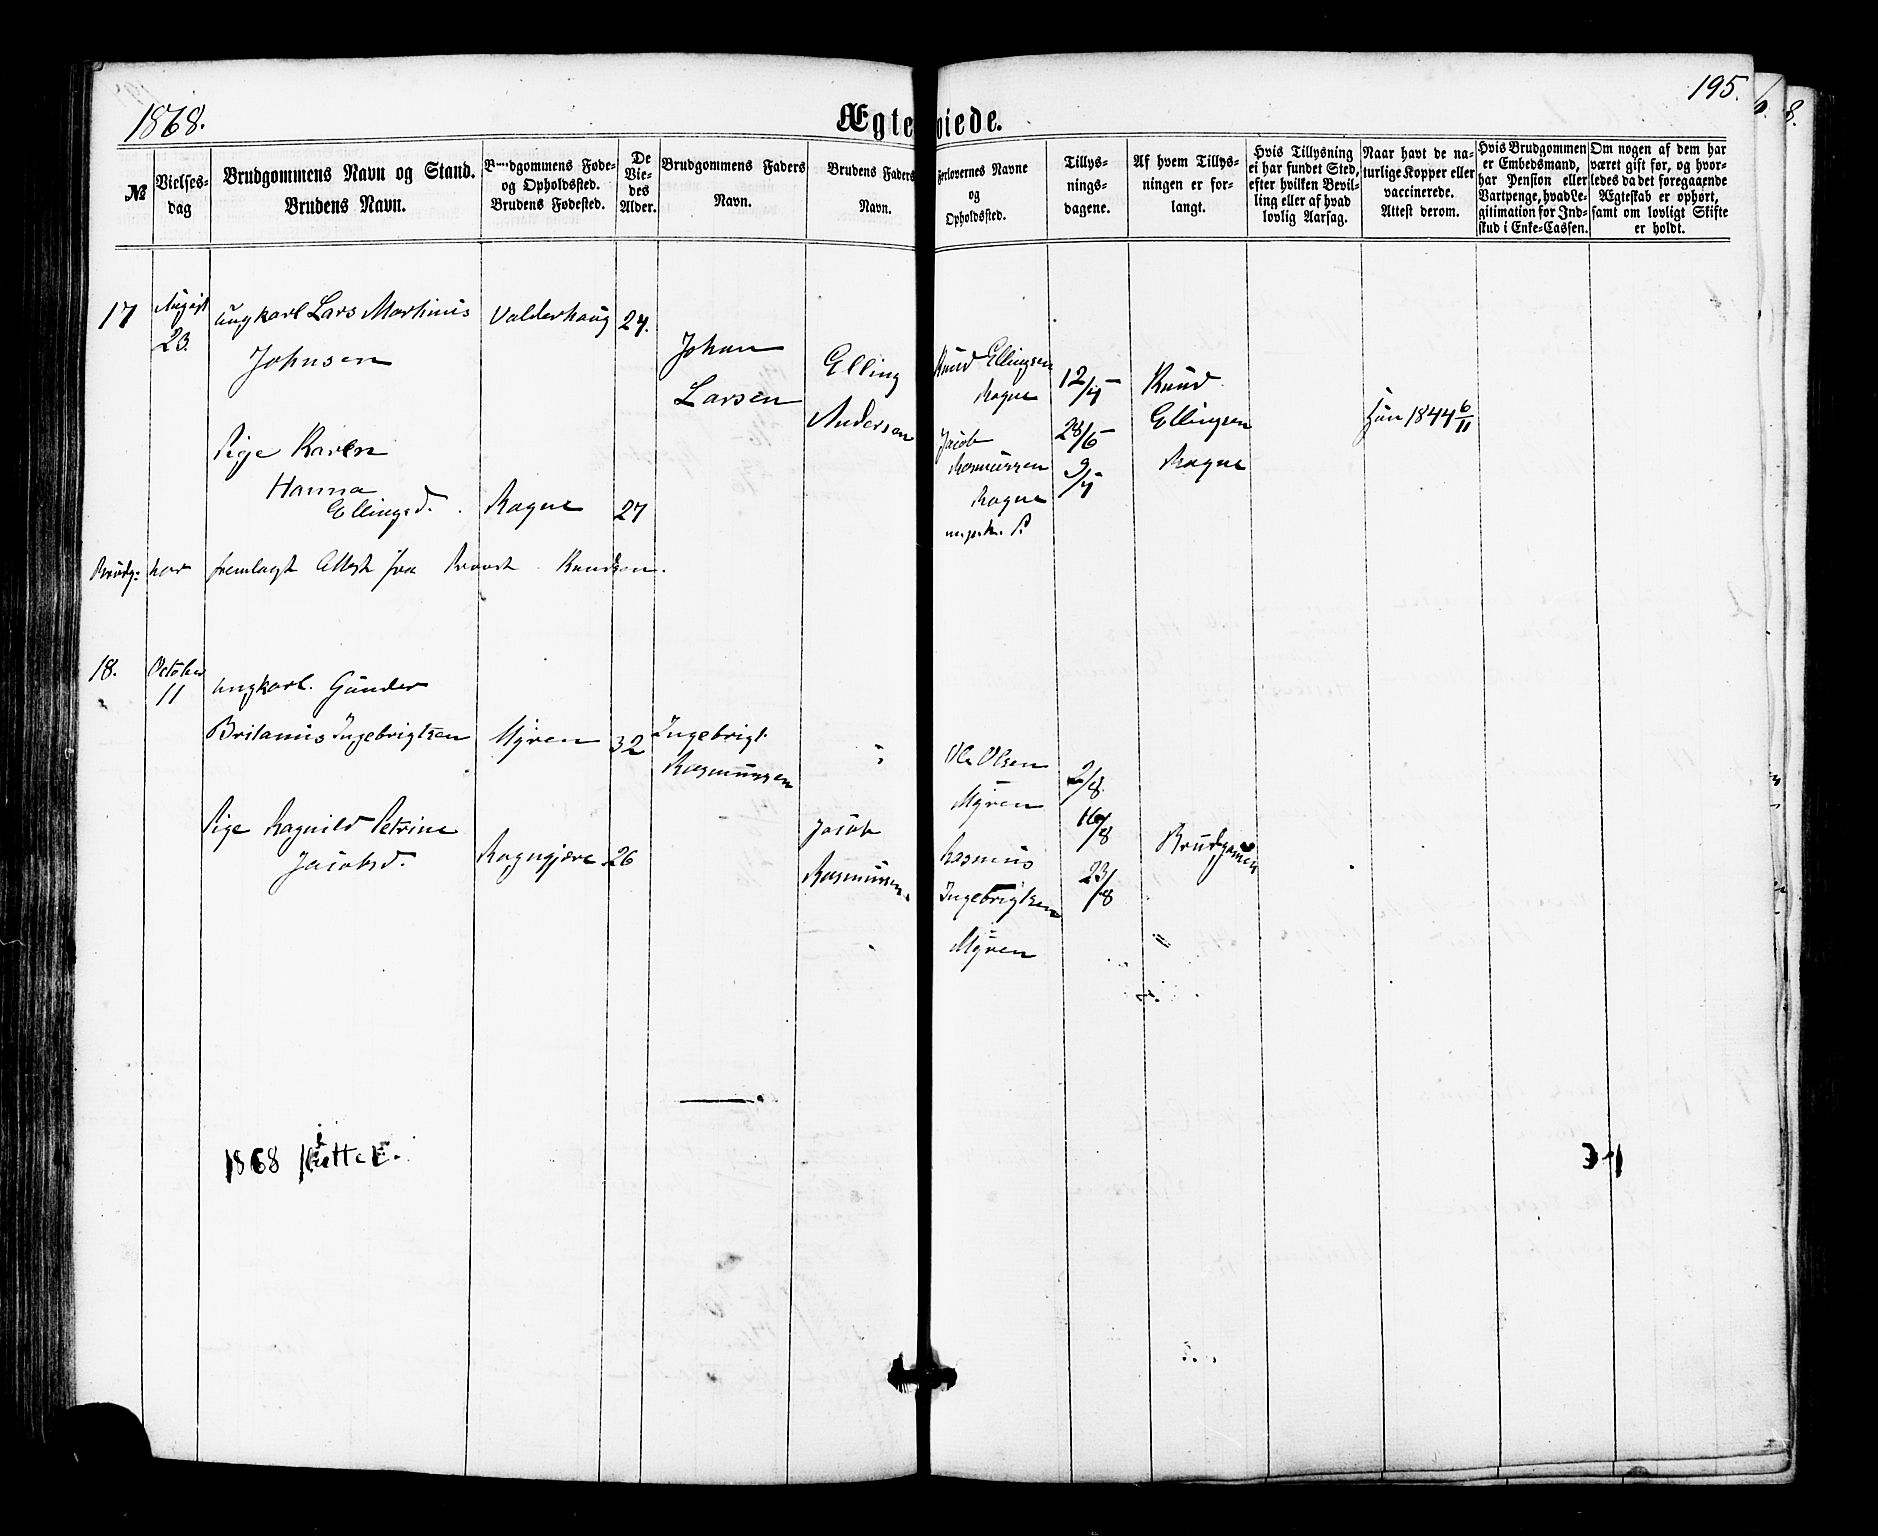 1868.
Ægteviede.
195.
№
Vielses-
dag
Brudgommens Navn og Stand.
Brudens Navn.
Brudgommens Føde-
og Opholdssted.
Brudens Fødested.
De
Vie-
des
Alder.
Brudgommens Faders
Navn.
Brudens Faders
Navn.
Forlovernes Navne
og
Opholdssted.
Tillys-
nings-
dagene.
Af hvem Tillys-
ningen er for-
langt.
Hvis Tillysning
ei har fundet Sted,
efter hvilken Bevil-
ling eller af hvad
lovlig Aarsag.
Naar havt de na-
turlige Kopper eller
vaccinerede.
Attest derom.
Hvis Brudgommen
er Embedsmand,
har Pension eller
Vartpenge, hvad Le-
gitimation for Ind-
skud i Enke-Cassen.
Om nogen af dem har
været gift før, og hvor-
ledes da det foregaaende
Ægteskab er ophørt,
samt om lovligt Skifte
er holdt.
17
August
23.
Ungkarl Lars Martinus
Johnsen
Valderhaug
24.
Johan
Larsen
Elling
Andersen
Knud Ellingsen
Rogne
Jacob
Rasmussen
Rogne
12/7
28/6
9/7
Knud
Ellingsen
Rogne
Hun 1844 6/11
Pige Karen
Hanna
Ellingsd.
Rogne
27
Brudg: har fremlagt Attest fra Provst Knudsen.
18.
October
11
Ungkarl. Gunder
Britanius Ingebrigtsen
Myren
32
Ingebrigt
Rasmussen
"
Ole Olsen
Myren
Rasmus
Ingebrigtsen
Myren
2/8
16/8
23/8
Brudgommen
Pige Ragnild Petrine
Jacobsd.
Rogngjære
26
Jacob
Rasmussen.
1868